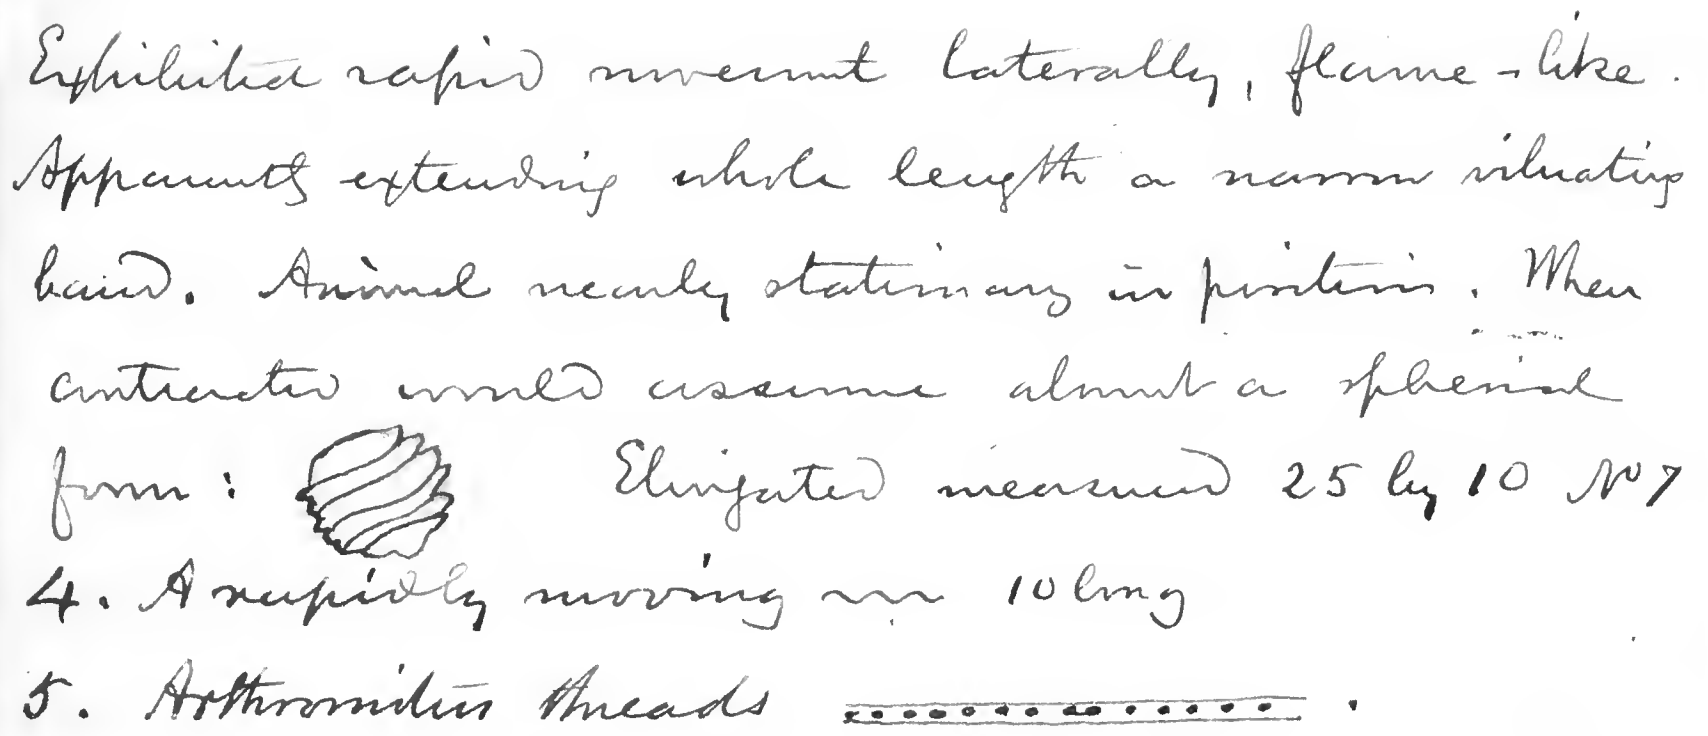 Exhibited rapid movement laterally, flame-like.
Apparently extending whole length a narrow vibrating
band. Animal nearly stationary in position. When
contracted would assume almost a spherical
form: Elongated measured 25 by 10 No 7
4. A rapidly moving 10 long
5. Arthromitus threads .